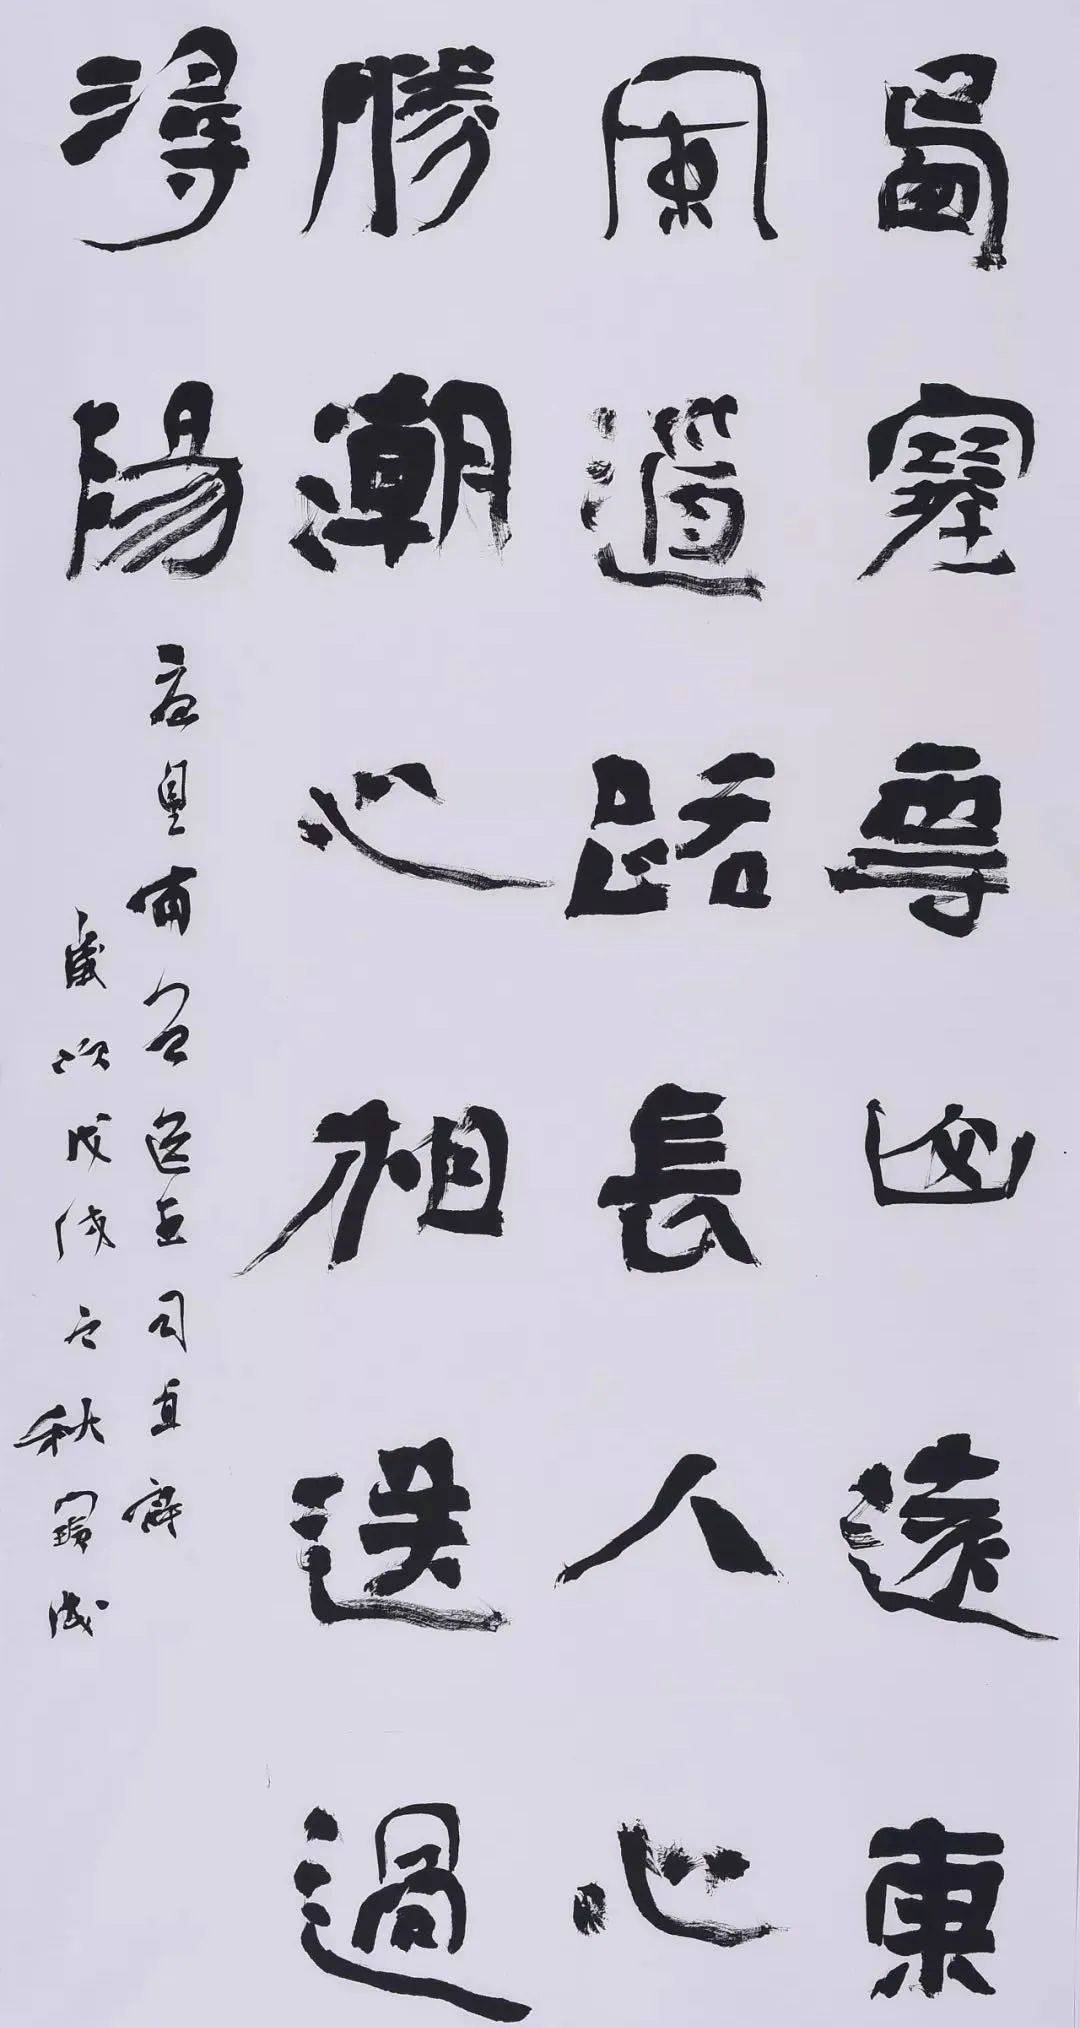 西塞雲山遠東
風道路長人心
勝潮心相送過
潯陽
唐皇甫曾送王司直詩
歲次戊戌之秋